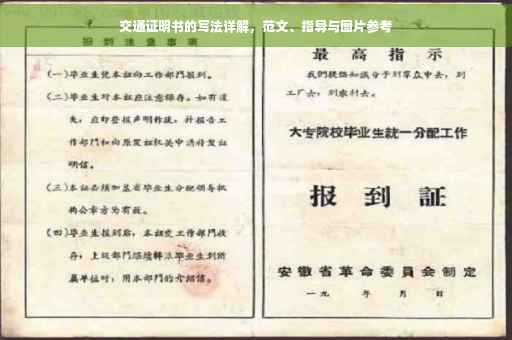 交通证明书的写法详解，范文、指导与图片参考
报到注意事项
(一)毕业生凭本证向工作部门报到。
(二)毕业生对本证应注意保存。如有遗
失，应即登报声明作废，并报告工
作部门和向原发证机关申请补发证
明信。
(三)本证必须加盖省毕业生分配领导机
构公章方为有效。
(四)毕业生报到后，本证交工作部门收
存，上级部门
属单位时，用本部门的介绍信。
最高指示
我们提倡知识分子到群众中去，到
工厂去，到农村去。
大专院校毕业生统一分配工作
报到证
安徽省革命委员会制定
一九 年 月 日